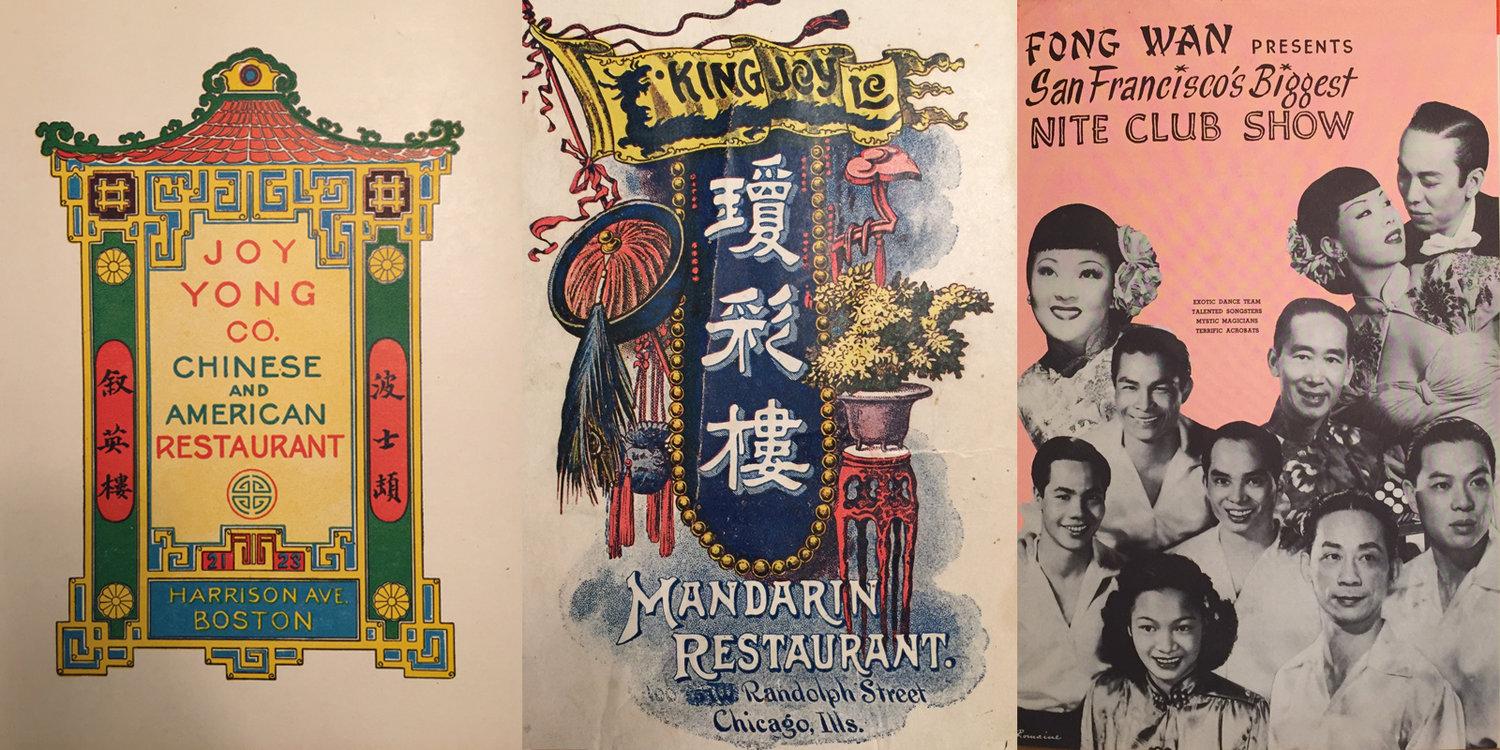 JOY
YONG
CO.
CHINESE
AND
AMERICAN
RESTAURANT
叙英樓
波士頓
21 23
HARRISON AVE.
BOSTON
KING JOY LO
瓊彩樓
MANDARIN
RESTAURANT.
Randolph Street
Chicago, Ills.
FONG WAN PRESENTS
San Francisco's Biggest
NITE CLUB SHOW
EXOTIC DANCE TEAM
TALENTED SONGSTERS
MYSTIC MAGICIANS
TERRIFIC ACROBATS
Romaine